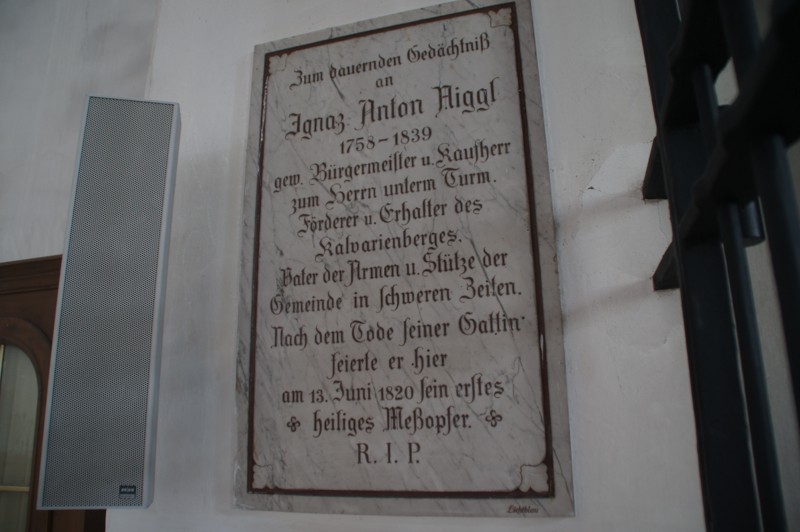 Zum dauernden Gedächtniß
an
Ignaz Anton Niggl
1758 – 1839
gew. Bürgermeister u. Kaufherr
zum Herrn unterm Turm.
Förderer u. Erhalter des
Kalvarienberges.
Vater der Armen u. Stütze der
Gemeinde in schweren Zeiten.
Nach dem Tode seiner Gattin
feierte er hier
am 13. Juni 1820 sein erstes
heiliges Meßopfer.
R. I. P.